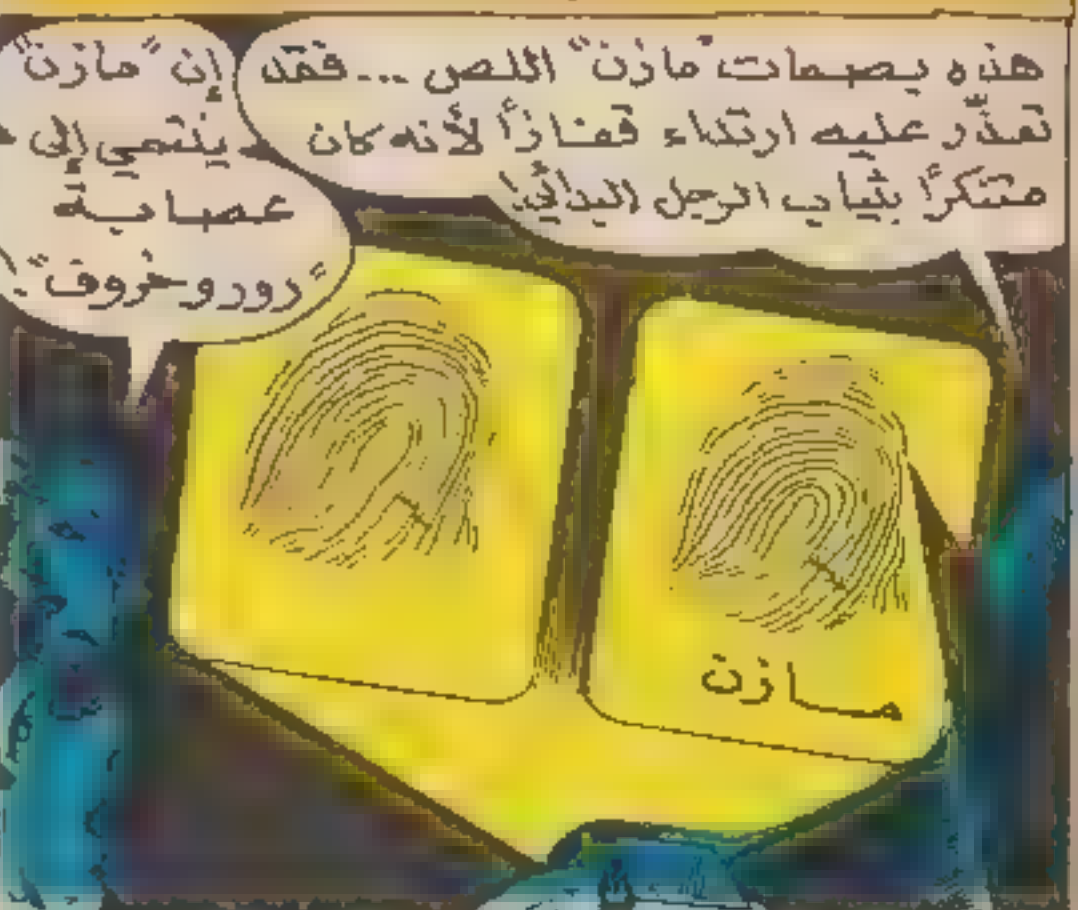 هذه بصمات "مازن" اللص ... فقد
تعذّر عليه ارتداء قفازاً لأنه كان
متنكرًا بثياب الرجل البدائي!
إن "مازن"
ينتمي إلى
عصابة
"رورو خروف"!
مازن